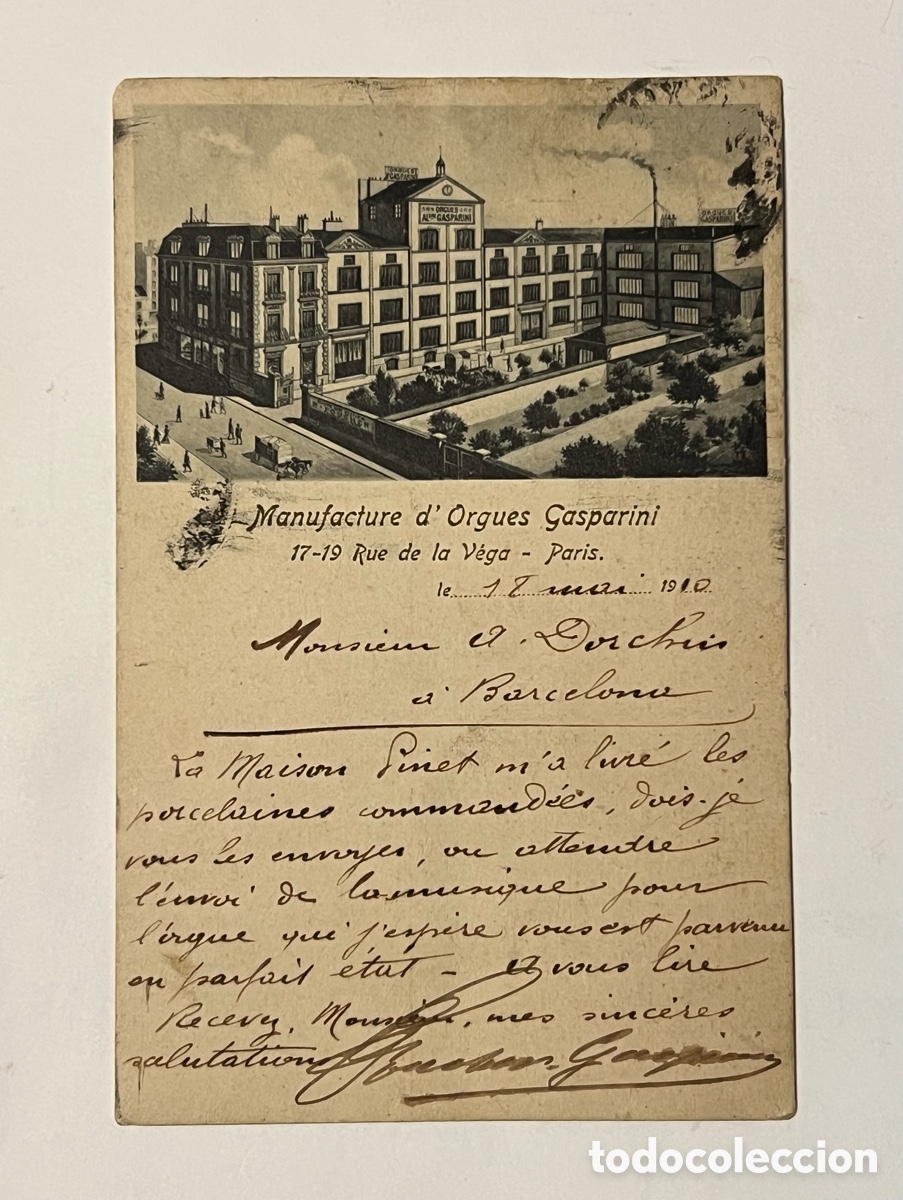 ORGUES
GASPARINI
ORGUES
ALdre GASPARINI
ORGUES
GASPARINI
Manufacture d'Orgues Gasparini
17-19 Rue de la Véga - Paris.
le 18 mai 1910
Monsieur A. Dorchin
à Barcelona
La Maison Pinet m'a livré les
porcelaines commandées, dois-je
vous les envoyer, ou attendre
l'envoi de la musique pour
l'orgue qui j'espère vous est parvenu
en parfait état - A vous lire
Recevez, Monsieur, mes sincères
salutations Gasparini
todocoleccion